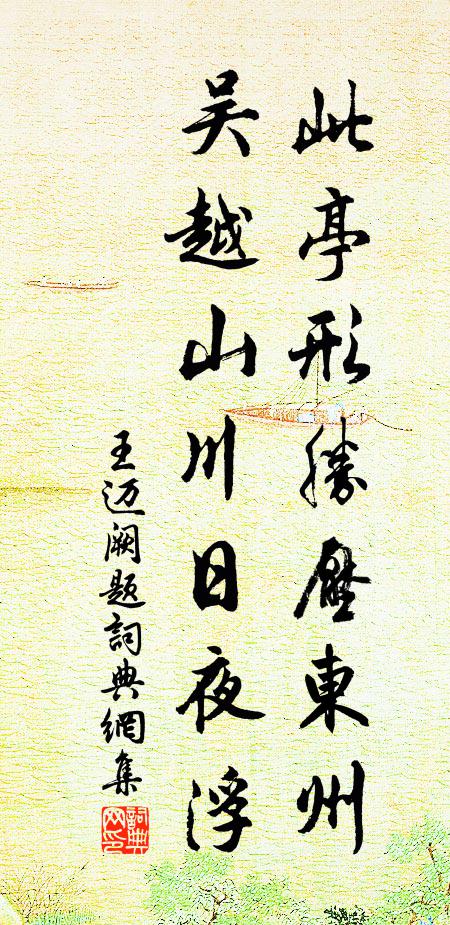 此亭形勝壓東州
吴越山川日夜浮
王迈阙题詞典網集
詞典网印